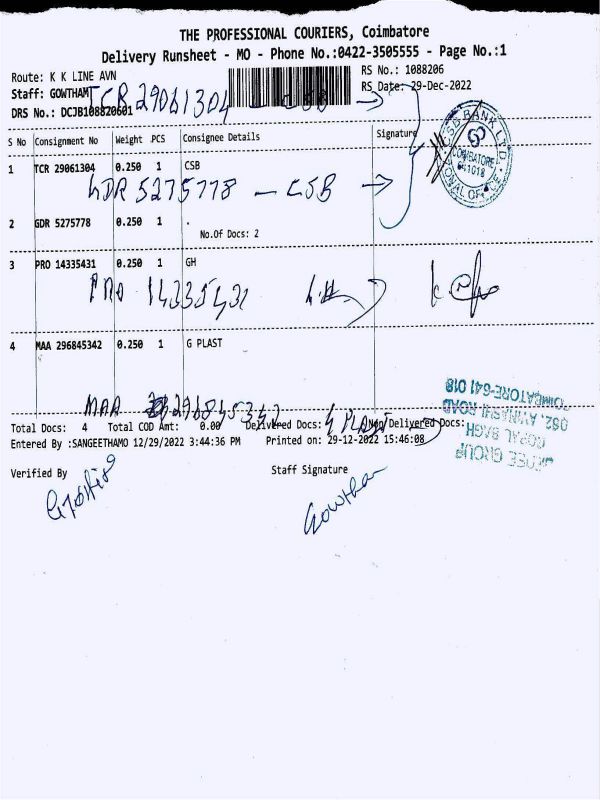 THE PROFESSIONAL COURIERS, Coimbatore
Delivery Runsheet - MO - Phone No.:0422-3505555 - Page No.:1
Route: K K LINE AVN
RS No.: 1088206
Staff: GOWTHAM
RS Date: 29-Dec-2022
TCR 29061304 - CSB
DRS No.: DCJB108820601
S No Consignment No Weight PCS Consignee Details Signature
CSB BANK LTD.
COIMBATORE
641018
1 TCR 29061304 0.250 1 CSB
GDR 5275778 - CSB
2 GDR 5275778 0.250 1 .
No.Of Docs: 2
3 PRO 14335431 0.250 1 GH
PRO 14335431 GH
4 MAA 296845342 0.250 1 G PLAST
MAA 296845342 G PLAST
Total Docs: 4 Total COD Amt: 0.00 Delivered Docs: Non Delivered Docs:
Entered By :SANGEETHAMO 12/29/2022 3:44:36 PM Printed on: 29-12-2022 15:46:08
GROUP
GOPAL BAGH
AVINASHI ROAD
COIMBATORE-641 018
Verified By
Staff Signature
Gowtham